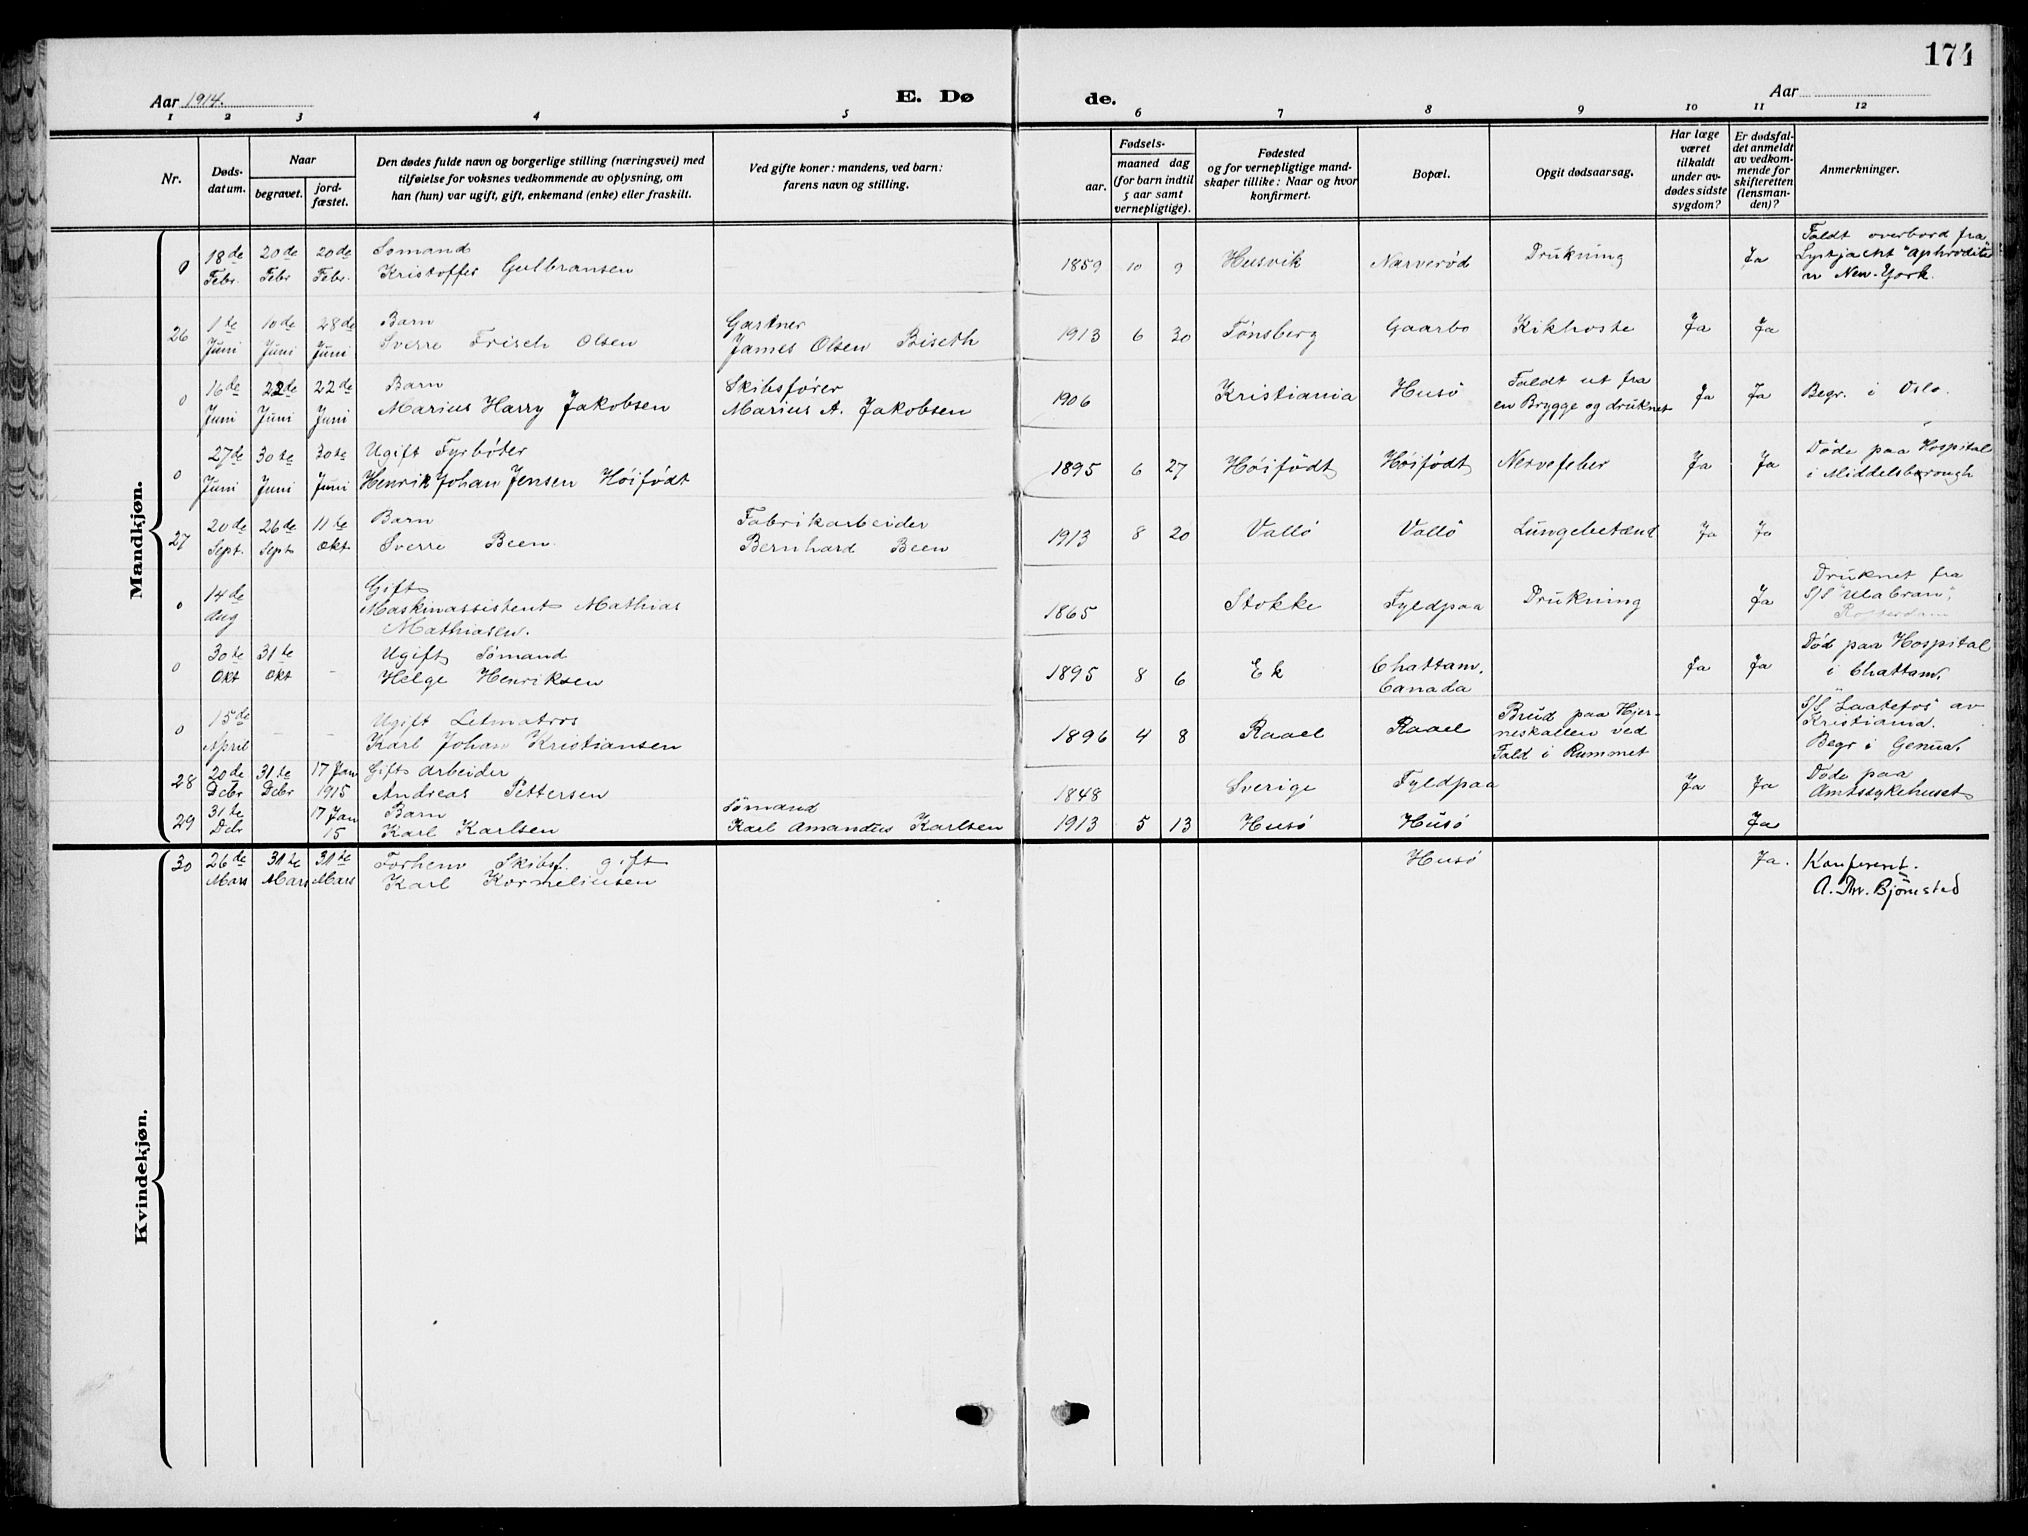 174
Aar 1914.
E. Dø
de.
Aar
1 2 3 4 5 6 7 8 9 10 11 12
Nr.
Døds-
datum.
Naar
begravet.
jord-
fæstet.
Den dødes fulde navn og borgerlige stilling (næringsvei) med
tilføielse for voksnes vedkommende av oplysning, om
han (hun) var ugift, gift, enkemand (enke) eller fraskilt.
Ved gifte koner: mandens, ved barn:
farens navn og stilling.
Fødsels-
aar.
maaned dag
(for barn indtil
5 aar samt
vernepligtige).
Fødested
og for vernepligtige mand-
skaper tillike: Naar og hvor
konfirmert.
Bopæl.
Opgit dødsaarsag.
Har læge
været
tilkaldt
under av-
dødes sidste
sygdom?
Er dødsfal-
det anmeldt
av vedkom-
mende for
skifteretten
(lensman-
den)?
Anmerkninger.
Mandkjøn.
0 18de Febr. 20de Febr 20de Febr.
Sømand
Kristoffer Gulbransen
1859 10 9 Husvik Narverød Drukning Ja
Faldt overbord fra
Lystjacht "Aphrodite"
New-York.
26 1te Juni 10de Juni 28de Juni
Barn
Sverre Frisch Olsen
Gartner
James Olsen Biseth
1913 6 30 Tønsberg Gaarbo Kikhoste Ja Ja
0 16de Juni 22de Juni 22de Juni
Barn
Marius Harry Jakobsen
Skibsfører
Marius A. Jakobsen
1906 Kristiania Husö
Faldt ut fra
en Brygge og druknet
Ja Ja Begr. i Oslo.
0 27de Juni 30te Juni 30te Juni
Ugift Fyrböter
Henrik Johan Jensen Höifödt
1895 6 27 Höifödt Höifödt Nervefeber Ja Ja
Døde paa Hospital
i Middelsborough
27 20de Sept. 26de Sept. 11te Okt.
Barn
Sverre Been
Fabrikarbeider
Bernhard Been
1913 8 20 Vallö Vallö Lungebetænd Ja Ja
0 14de Aug
Gift
Maskinassistent Mathias
Mathiasen.
1865 Stokke Fyldpaa Drukning Ja
Druknet fra
S/S "Ulabran",
Rotterdam
0 30te Okt 31te Okt -
Ugift Sömand
Helge Henriksen
1895 8 6 Ek
Chattam.
Canada
Ja Ja
Død paa Hospital
i Chattam.
0 15de April - -
Ugift Letmatros
Karl Johan Kristiansen
1896 4 8 Raael Raael
Brud paa Hjer-
neskallen ved
Fald i Rummet
S/S "Laatefos" av
Kristiania.
Begr i Genua.
28 20de Debr 31te Debr 17 Jan 1915
Gift Arbeider
Andreas Pettersen
1848 Sverige Fyldpaa Ja Ja
Døde paa
Amtssykehuset
29 31te Debr 17 Jan 15
Barn
Karl Karlsen
Sømand
Karl Amandus Karlsen
1913 5 13 Husö Husö Ja
Kvindekjøn.
30 26de Mars 31te Mars 31te Mars
Forhenv Skibsf. gift
Karl Korneliusen
Husö Ja.
Konferent.
A. Thv. Bjørnstad